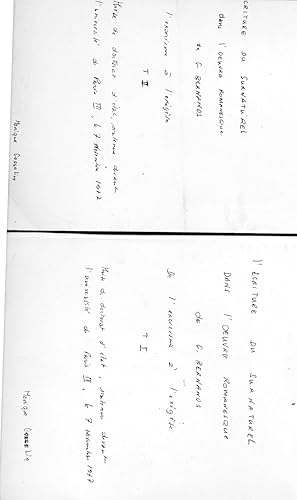 CRITURE DU SURNATUREL
dans l'OEUVRE ROMANESQUE
de G. BERNANOS
l'exorcisme à l'exégèse
T II
Thèse de doctorat d'état, soutenue devant
l'université de Paris III, le 7 décembre 1977
Monique Gosselin
l'ECRITURE DU SURNATUREL
DANS l'OEUVRE ROMANESQUE
de G. BERNANOS
De l'exorcisme à l'exégèse
T I
Thèse de doctorat d'état, soutenue devant
l'université de Paris III, le 7 décembre 1977
Monique Gosselin